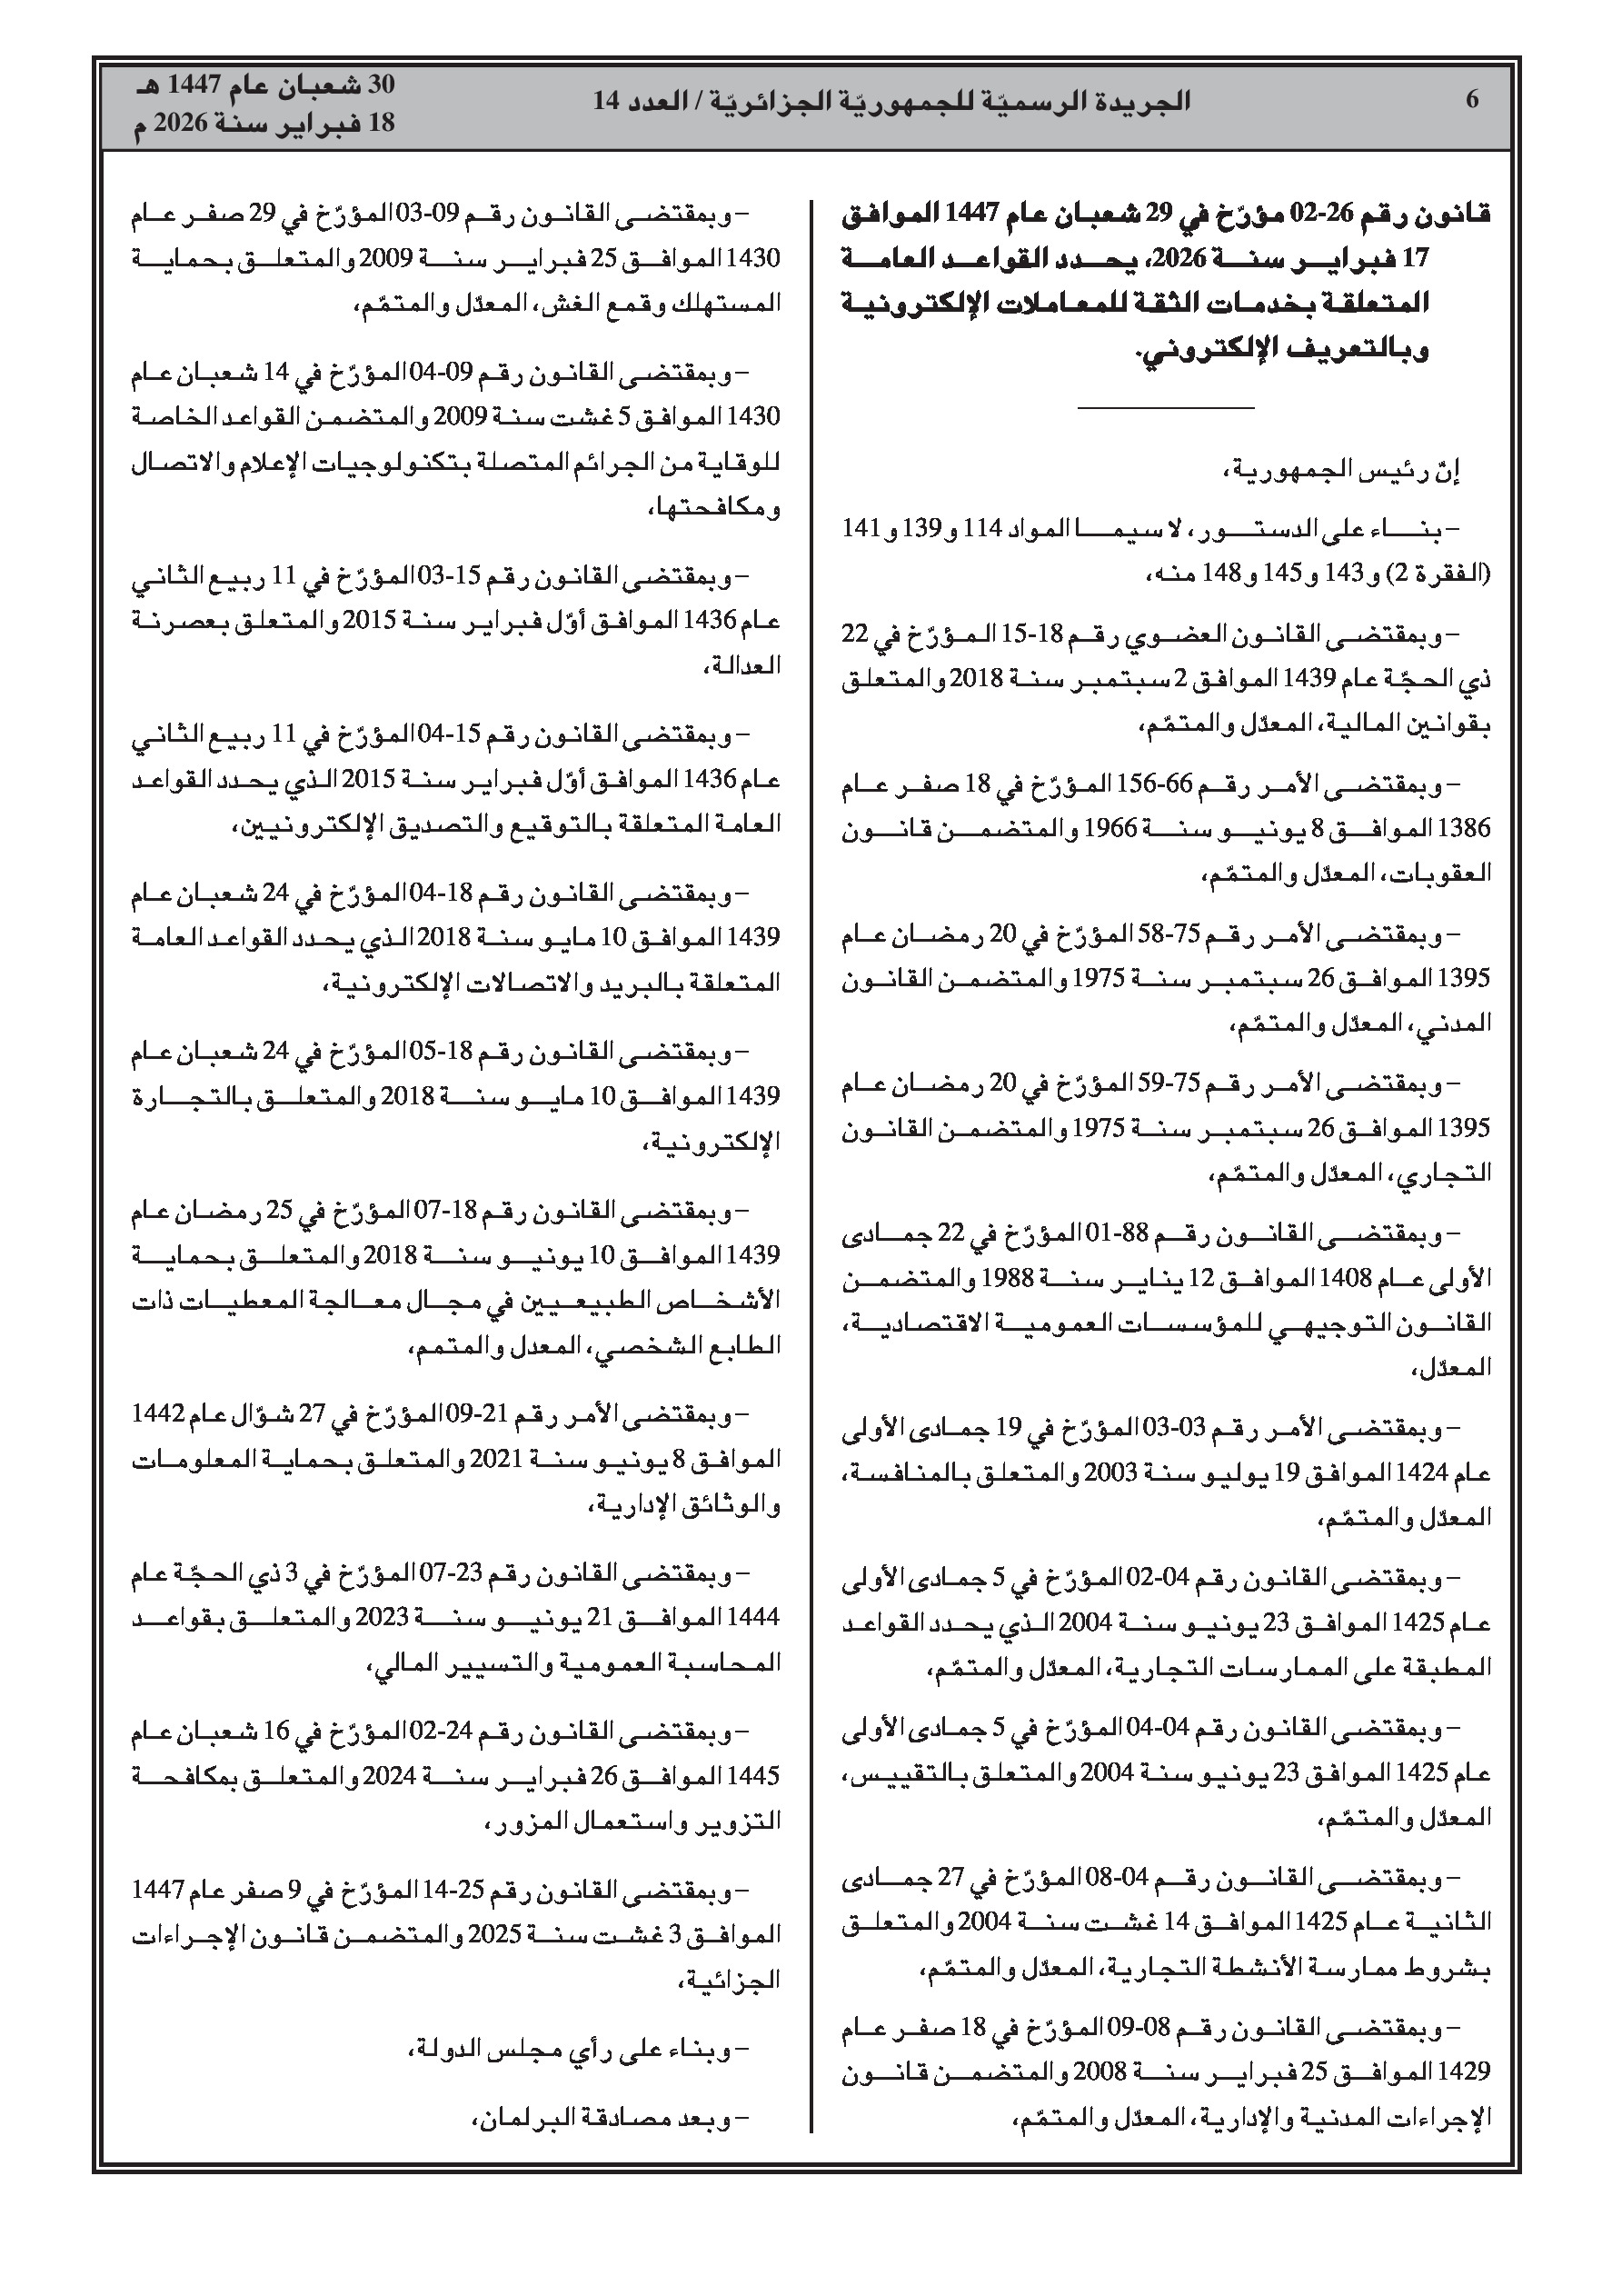 6
الجريدة الرسميّة للجمهوريّة الجزائريّة / العدد 14
30 شعبان عام 1447 هـ
18 فبراير سنة 2026 م
قانون رقم 26-02 مؤرّخ في 29 شعبان عام 1447 الموافق
17 فبراير سنة 2026، يحدد القواعد العامة
المتعلقة بخدمات الثقة للمعاملات الإلكترونية
وبالتعريف الإلكتروني.
إنّ رئيس الجمهورية،
– بناء على الدستور، لا سيما المواد 114 و139 و141
(الفقرة 2) و143 و145 و148 منه،
– وبمقتضى القانون العضوي رقم 18-15 المؤرّخ في 22
ذي الحجّة عام 1439 الموافق 2 سبتمبر سنة 2018 والمتعلق
بقوانين المالية، المعدّل والمتمّم،
– وبمقتضى الأمر رقم 66-156 المؤرّخ في 18 صفر عام
1386 الموافق 8 يونيو سنة 1966 والمتضمن قانون
العقوبات، المعدّل والمتمّم،
– وبمقتضى الأمر رقم 75-58 المؤرّخ في 20 رمضان عام
1395 الموافق 26 سبتمبر سنة 1975 والمتضمن القانون
المدني، المعدّل والمتمّم،
– وبمقتضى الأمر رقم 75-59 المؤرّخ في 20 رمضان عام
1395 الموافق 26 سبتمبر سنة 1975 والمتضمن القانون
التجاري، المعدّل والمتمّم،
– وبمقتضى القانون رقم 88-01 المؤرّخ في 22 جمادى
الأولى عام 1408 الموافق 12 يناير سنة 1988 والمتضمن
القانون التوجيهي للمؤسسات العمومية الاقتصادية،
المعدّل،
– وبمقتضى الأمر رقم 03-03 المؤرّخ في 19 جمادى الأولى
عام 1424 الموافق 19 يوليو سنة 2003 والمتعلق بالمنافسة،
المعدّل والمتمّم،
– وبمقتضى القانون رقم 04-02 المؤرّخ في 5 جمادى الأولى
عام 1425 الموافق 23 يونيو سنة 2004 الذي يحدد القواعد
المطبقة على الممارسات التجارية، المعدّل والمتمّم،
– وبمقتضى القانون رقم 04-04 المؤرّخ في 5 جمادى الأولى
عام 1425 الموافق 23 يونيو سنة 2004 والمتعلق بالتقييس،
المعدّل والمتمّم،
– وبمقتضى القانون رقم 04-08 المؤرّخ في 27 جمادى
الثانية عام 1425 الموافق 14 غشت سنة 2004 والمتعلق
بشروط ممارسة الأنشطة التجارية، المعدّل والمتمّم،
– وبمقتضى القانون رقم 08-09 المؤرّخ في 18 صفر عام
1429 الموافق 25 فبراير سنة 2008 والمتضمن قانون
الإجراءات المدنية والإدارية، المعدّل والمتمّم،
– وبمقتضى القانون رقم 09-03 المؤرّخ في 29 صفر عام
1430 الموافق 25 فبراير سنة 2009 والمتعلق بحماية
المستهلك وقمع الغش، المعدّل والمتمّم،
– وبمقتضى القانون رقم 09-04 المؤرّخ في 14 شعبان عام
1430 الموافق 5 غشت سنة 2009 والمتضمن القواعد الخاصة
للوقاية من الجرائم المتصلة بتكنولوجيات الإعلام والاتصال
ومكافحتها،
– وبمقتضى القانون رقم 15-03 المؤرّخ في 11 ربيع الثاني
عام 1436 الموافق أوّل فبراير سنة 2015 والمتعلق بعصرنة
العدالة،
– وبمقتضى القانون رقم 15-04 المؤرّخ في 11 ربيع الثاني
عام 1436 الموافق أوّل فبراير سنة 2015 الذي يحدد القواعد
العامة المتعلقة بالتوقيع والتصديق الإلكترونيين،
– وبمقتضى القانون رقم 18-04 المؤرّخ في 24 شعبان عام
1439 الموافق 10 مايو سنة 2018 الذي يحدد القواعد العامة
المتعلقة بالبريد والاتصالات الإلكترونية،
– وبمقتضى القانون رقم 18-05 المؤرّخ في 24 شعبان عام
1439 الموافق 10 مايو سنة 2018 والمتعلق بالتجارة
الإلكترونية،
– وبمقتضى القانون رقم 18-07 المؤرّخ في 25 رمضان عام
1439 الموافق 10 يونيو سنة 2018 والمتعلق بحماية
الأشخاص الطبيعيين في مجال معالجة المعطيات ذات
الطابع الشخصي، المعدل والمتمم،
– وبمقتضى الأمر رقم 21-09 المؤرّخ في 27 شوّال عام 1442
الموافق 8 يونيو سنة 2021 والمتعلق بحماية المعلومات
والوثائق الإدارية،
– وبمقتضى القانون رقم 23-07 المؤرّخ في 3 ذي الحجّة عام
1444 الموافق 21 يونيو سنة 2023 والمتعلق بقواعد
المحاسبة العمومية والتسيير المالي،
– وبمقتضى القانون رقم 24-02 المؤرّخ في 16 شعبان عام
1445 الموافق 26 فبراير سنة 2024 والمتعلق بمكافحة
التزوير واستعمال المزور،
– وبمقتضى القانون رقم 25-14 المؤرّخ في 9 صفر عام 1447
الموافق 3 غشت سنة 2025 والمتضمن قانون الإجراءات
الجزائية،
– وبناء على رأي مجلس الدولة،
– وبعد مصادقة البرلمان،